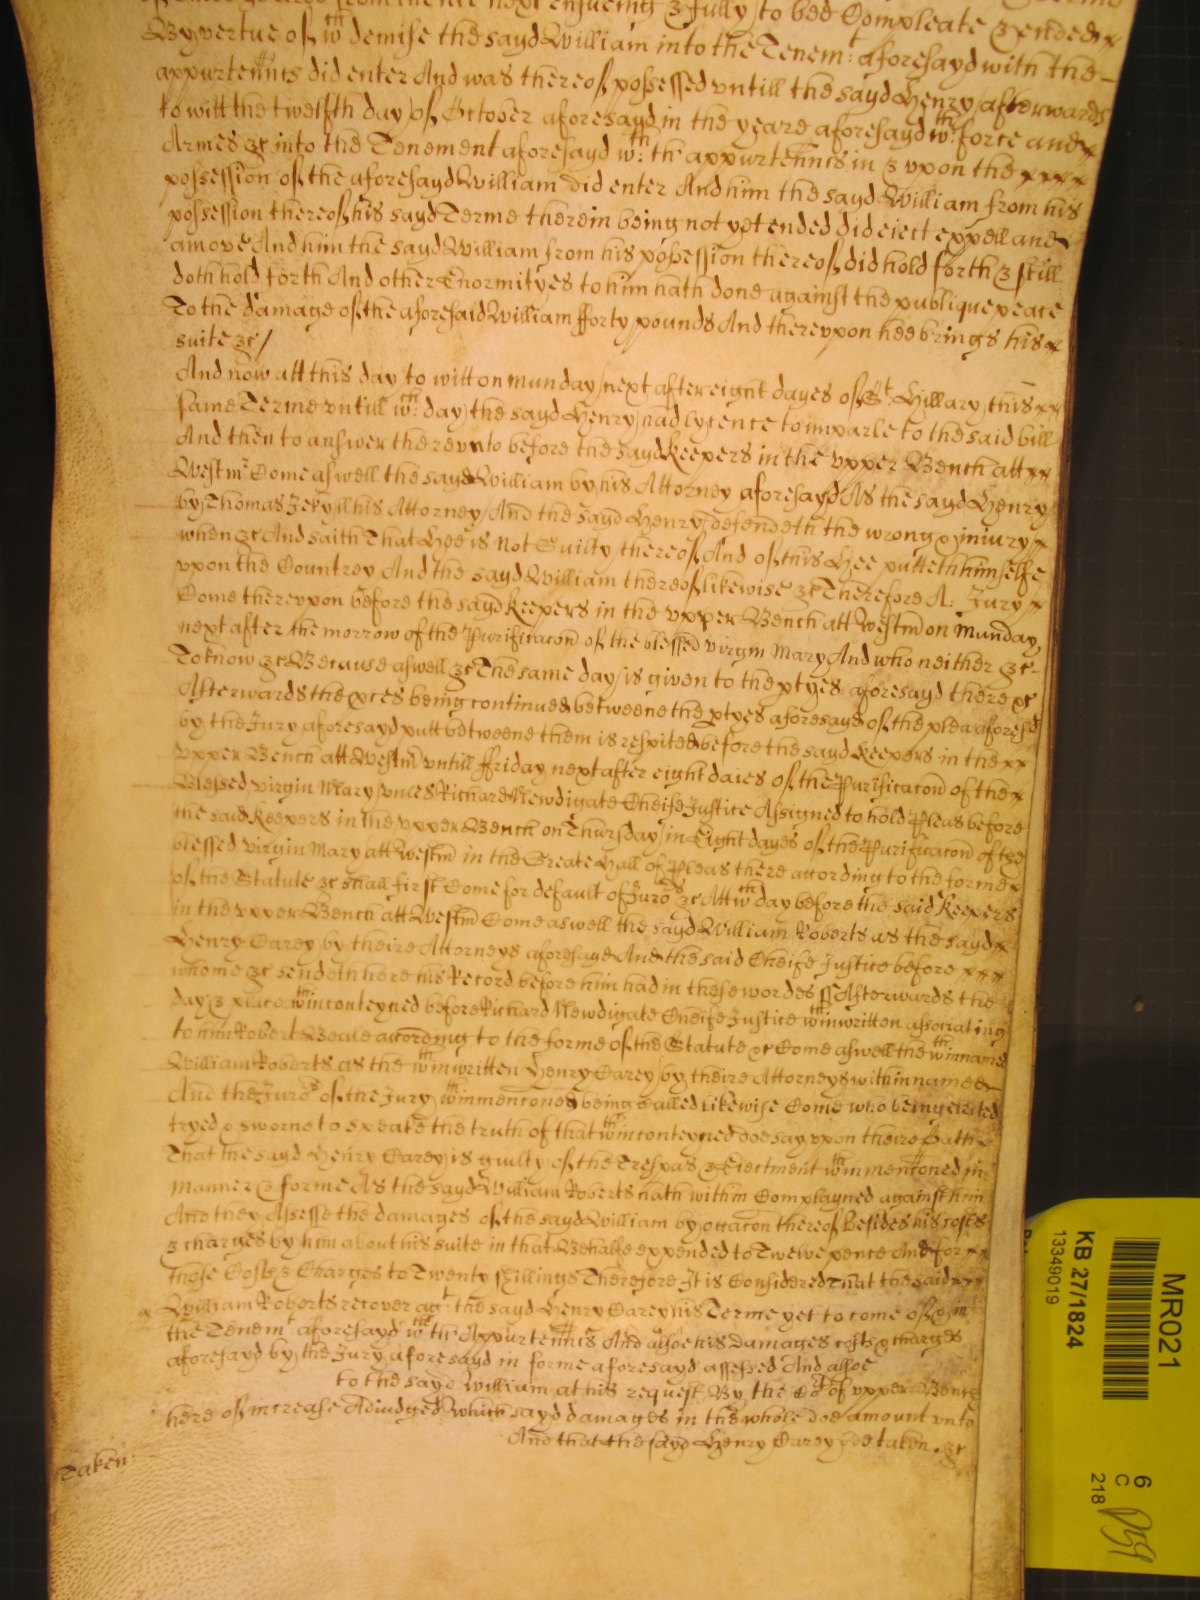 from thence next ensueing & fully to bee Compleate & ended x
By vertue of wch demise the sayd William into the Tenemt: aforesayd with the
appurtennts did enter And was thereof possessed vntill the sayd Henry afterwards
to witt the twelfth day of October aforesayd in the yeare aforesayd wth: force and x
Armes &c into the Tenement aforesayd wth: th' appurtennts in & vpon the xxxx
possession of the aforesayd William did enter And him the sayd William from his
possession thereof his sayd Terme therein being not yet ended did eiect expell and
amove And him the sayd William from his possession thereof did hold forth & still
doth hold forth And other Enormityes to him hath done against the publique peace
To the damage of the aforesaid William fforty pounds And therevpon hee brings his x
suite &c/
And now att this day to witt on munday next after eight dayes of St: Hillary this xx
same Terme vntill wch: day the sayd Henry had lycence to imparle to the said bill
And then to answer therevnto before the sayd keepers in the vpper Bench att xx
Westmr Come aswell the sayd William by his Attorney aforesayd As the sayd Henry
by Thomas Jekyll his Attorney And the sayd Henry defendeth the wrong & iniury x
when &c And saith That Hee is not Guilty thereof And of this Hee putteth himselfe
vpon the Countrey And the sayd William thereof likewise &c Therefore A: Jury x
Come therevpon before the sayd keepers in the vpper Bench att Westm on Munday
next after the morrow of the Purificacon of the blessed virgin Mary And who neither &c
To know &c Because aswell &c The same day is given to the ptyes aforesayd there &c
Afterwards the pces being continued betweene the ptyes aforesayd of the plea aforesd
by the Jury aforesayd putt betweene them is respited before the sayd keepers in the xx
vpper Bench att Westm vntill ffriday next after eight daies of the Purificacon of the x
Blessed virgin Mary vnles Richard Newdigate Cheife Justice Assigned to hold Pleas before
the said keepers in the vpper Bench on Thursday in Eight dayes of the Purificacon of the
blessed virgin Mary att Westm in the Greate Hall of Pleas there according to the forme x
of the Statute &c shall first Come for default of Jurors &c Att wch day before the said keepers
in the vpper Bench att Westm Come aswell the sayd William Roberts as the sayd x
Henry Carey by theire Attorneys aforesayd And the said Cheife Justice before xxx
whome &c sendeth here his Record before him had in these wordes ss Afterwards the
day & place wthin conteyned before Richard Newdigate Cheife Justice wthin written associating
to him Robert Beale according to the forme of the Statute &c Come aswell the wthin named
William Roberts as the wthin written Henry Carey by theire Attorneys within named
And the Jurors of the Jury wthin menconed being Called likewise Come who being elected
tryed & sworne to speake the truth of that wthin conteyned doe say vpon theire Oath x
That the sayd Henry Carey is guilty of the Trespas & Eiectment wthin menconed in
Manner & forme As the sayd William Roberts hath within Complayned against him
And they Assesse the damages of the sayd William by occacon thereof besides his costs
& charges by him about his suite in that Behalfe expended to Twelve pence And for xx
those Costs & Charges to Twenty shillings Therefore It is Considered That the said xxx
William Roberts recover agt: the sayd Henry Carey his Terme yet to come of & in
the Tenemt aforesayd wth th' Appurtennts And alsoe his damages costs & charges
aforesayd by the Jury aforesayd in forme aforesayd assessed And alsoe
to the sayd William at his request By the Cort of vpper Bench
here of increase Adiudged Which sayd damages in the whole doe amount vnto
And that the sayd Henry Carey bee taken &c
Taken
MR021
KB 27/1824
13349019
6
C
218